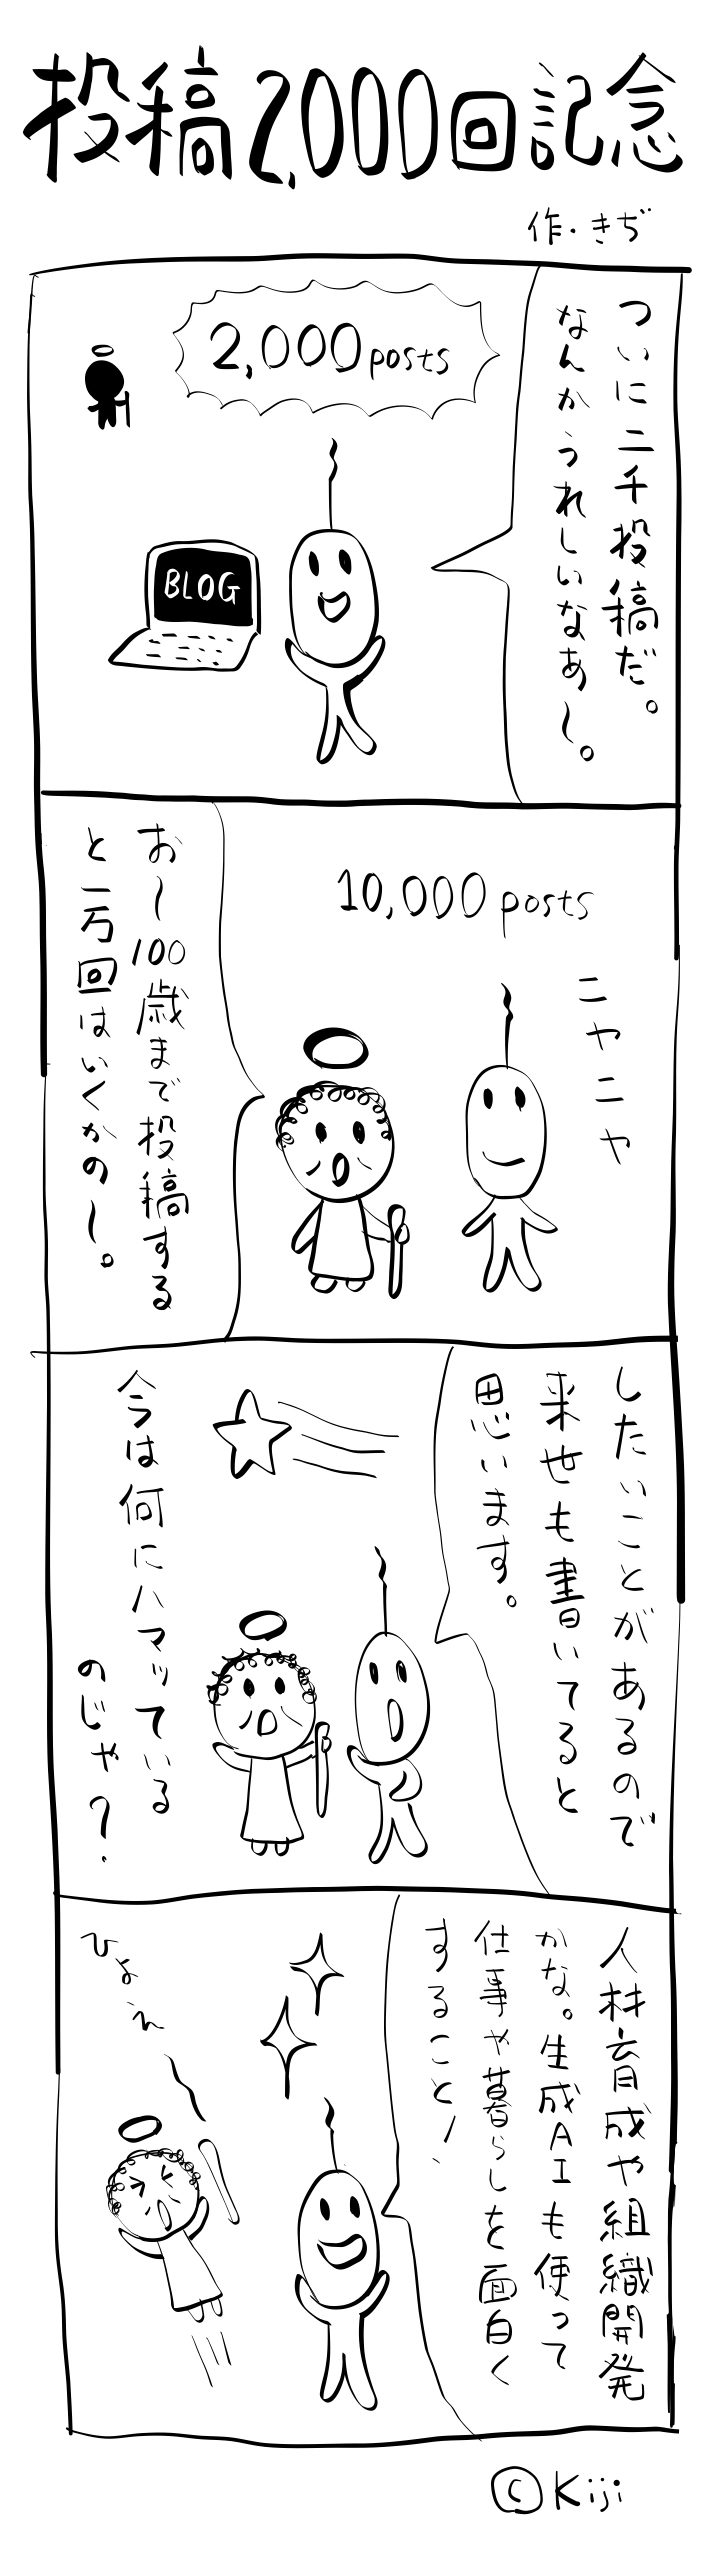 投稿2,000回記念
作・きぢ
ついに二千投稿だ。
なんかうれしいなあ〜。
2,000 posts
BLOG
10,000 posts
ニヤニヤ
お〜100歳まで投稿する
と一万回はいくかの〜。
したいことがあるので
来世も書いてると
思います。
今は何にハマッている
のじゃ?
人材育成や組織開発
かな。生成AIも使って
仕事や暮らしを面白く
すること!
ひょえ〜
©Kiji